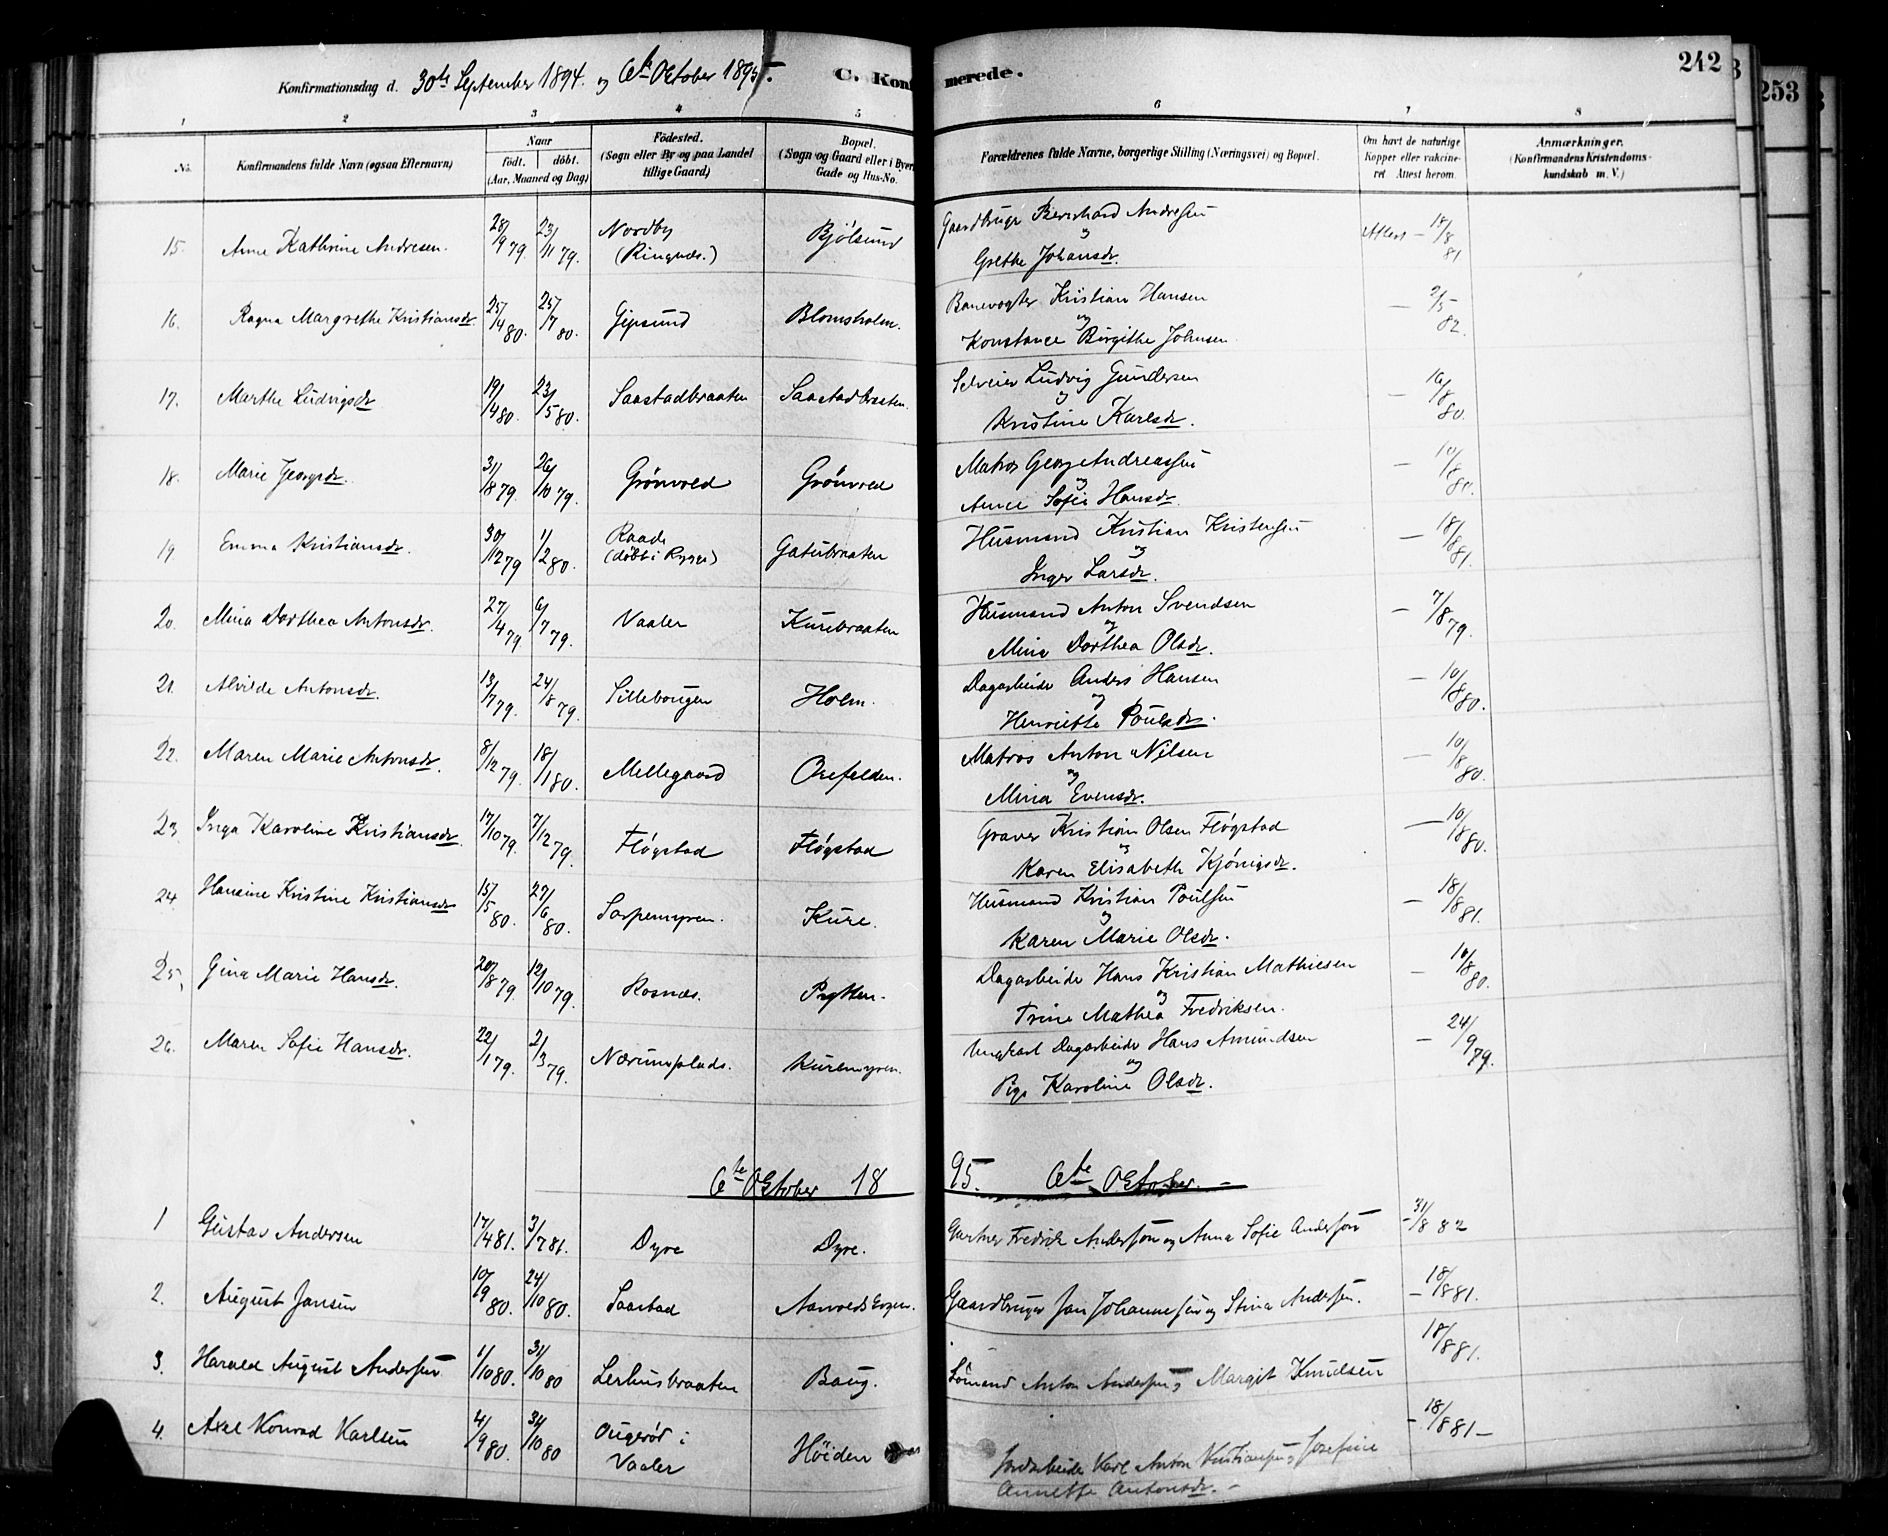 Konfirmationsdag d. 30te September 1894. og 6te October 1895. C. Konfirmerede. 242
253
1 2 3 4 5 6 7 8
No. Konfirmandens fulde Navn (ogsaa Efternavn) Naar født. døbt. (Aar, Maaned og Dag) Fødested. (Sogn eller By og paa Landet tillige Gaard) Bopæl. (Sogn og Gaard eller i Byen Gade og Hus-No. Forældrenes fulde Navne, borgerlige Stilling (Næringsvei) og Bopæl. Om havt de naturlige Kopper eller vakcineret Attest herom. Anmærkninger. (Konfirmandens Kristendomskundskab m. V.)
15. Anne Kathrine Andresen. 28/9 79. 23/11 79. Nordby (Ringnæs.) Bjölsund Gaardbruger Bernhard Andresen og Grethe Johansdr. Attest – 18/8 81
16. Ragna Margrethe Kristiansdr. 25/4 80. 25/7 80. Gipsund Blomsholm. Banevogter Kristian Hansen og Konstance Birgithe Johnsen – 2/5 82.
17. Marthe Ludvigsdr 19/4 80. 23/5 80. Saastadbraaten Saastadbraaten. Selveier Ludvig Gundersen og Kristine Karlsdr. – 16/8 80.
18. Marie Georgsdr. 31/8 79. 26/10 79. Grönvold Grönvold Matros Georg Andreassen og Anne Sofie Hansdr. – 10/8 80.
19 Emma Kristiansdr. 30/12 79 1/2 80. Raade (döbt i Rygge) Gatubraaten Husmand Kristian Kristensen og Inger Larsdr. – 18/8 81.
20. Mina Dorthea Antonsdr. 27/4 79. 6/7 79. Vaaler Kurebraaten Husmand Anton Svendsen og Mina Dorthea Olsdr. – 7/8 79.
21. Alvilde Antonsdr. 13/7 79. 24/8 79. Sillebougen Holm. Dagarbeider Anders Hansen og Henriette Poulsdr. – 10/8 80.
22. Maren Marie Antonsdr. 8/12 79. 18/1 80. Mellegaard Orefelden. Matros Anton Nilsen og Mina Evensdr. – 10/8 80.
23 Inga Karoline Kristiansdr 17/10 79. 7/12 79. Flógstad Flógstad Graver Kristian Olsen Flógstad og Karen Elisabeth Kjónigsdr. – 10/8 80.
24. Hansine Kristine Kristiansdr 15/5 80. 27/6 80. Sarpemyren. Kure. Husmand Kristian Poulsen og Karen Marie Olsdr. – 18/8 81.
25. Gina Marie Hansdr. 20/8 79. 12/10 79. Rosnæs. Prytten. Dagarbeider Hans Kristian Mathiesen og Trine Mathea Fredriksen. – 10/8 80.
26. Maren Sofie Hansdr. 22/1 79. 2/3 79. Nærumsplads. Kuremyren. Ungkarl Dagarbeider Hans Amundsen og Pige Karoline Olsdr. – 24/9 79.
6te October 1895. 6te October. –
1 Gustav Andersen 17/4 81. 3/7 81. Dyre Dyre. Gartner Fredrik Andersson og Anna Sofie Andersson – 31/8 82
2. August Jansen 10/9 80. 24/10 80. Saastad Aarvolds Gaardbruger Jan Johannesen og Stina Andersen. – 18/8 81.
3. Harald August Andersen 1/10 80. 31/10 80 Lerhusbraaten Baug. Sömand Anton Andersen og Margit Knudsen 18/8 81.
4. Axel Konrad Karlsen 4/9 80. 31/10 80 Ougeröd i Vaaler Höiden Jordarbeider Karl Anton Kristiansen og Josefine Annette Antonsdr. – – 18/8 81 –